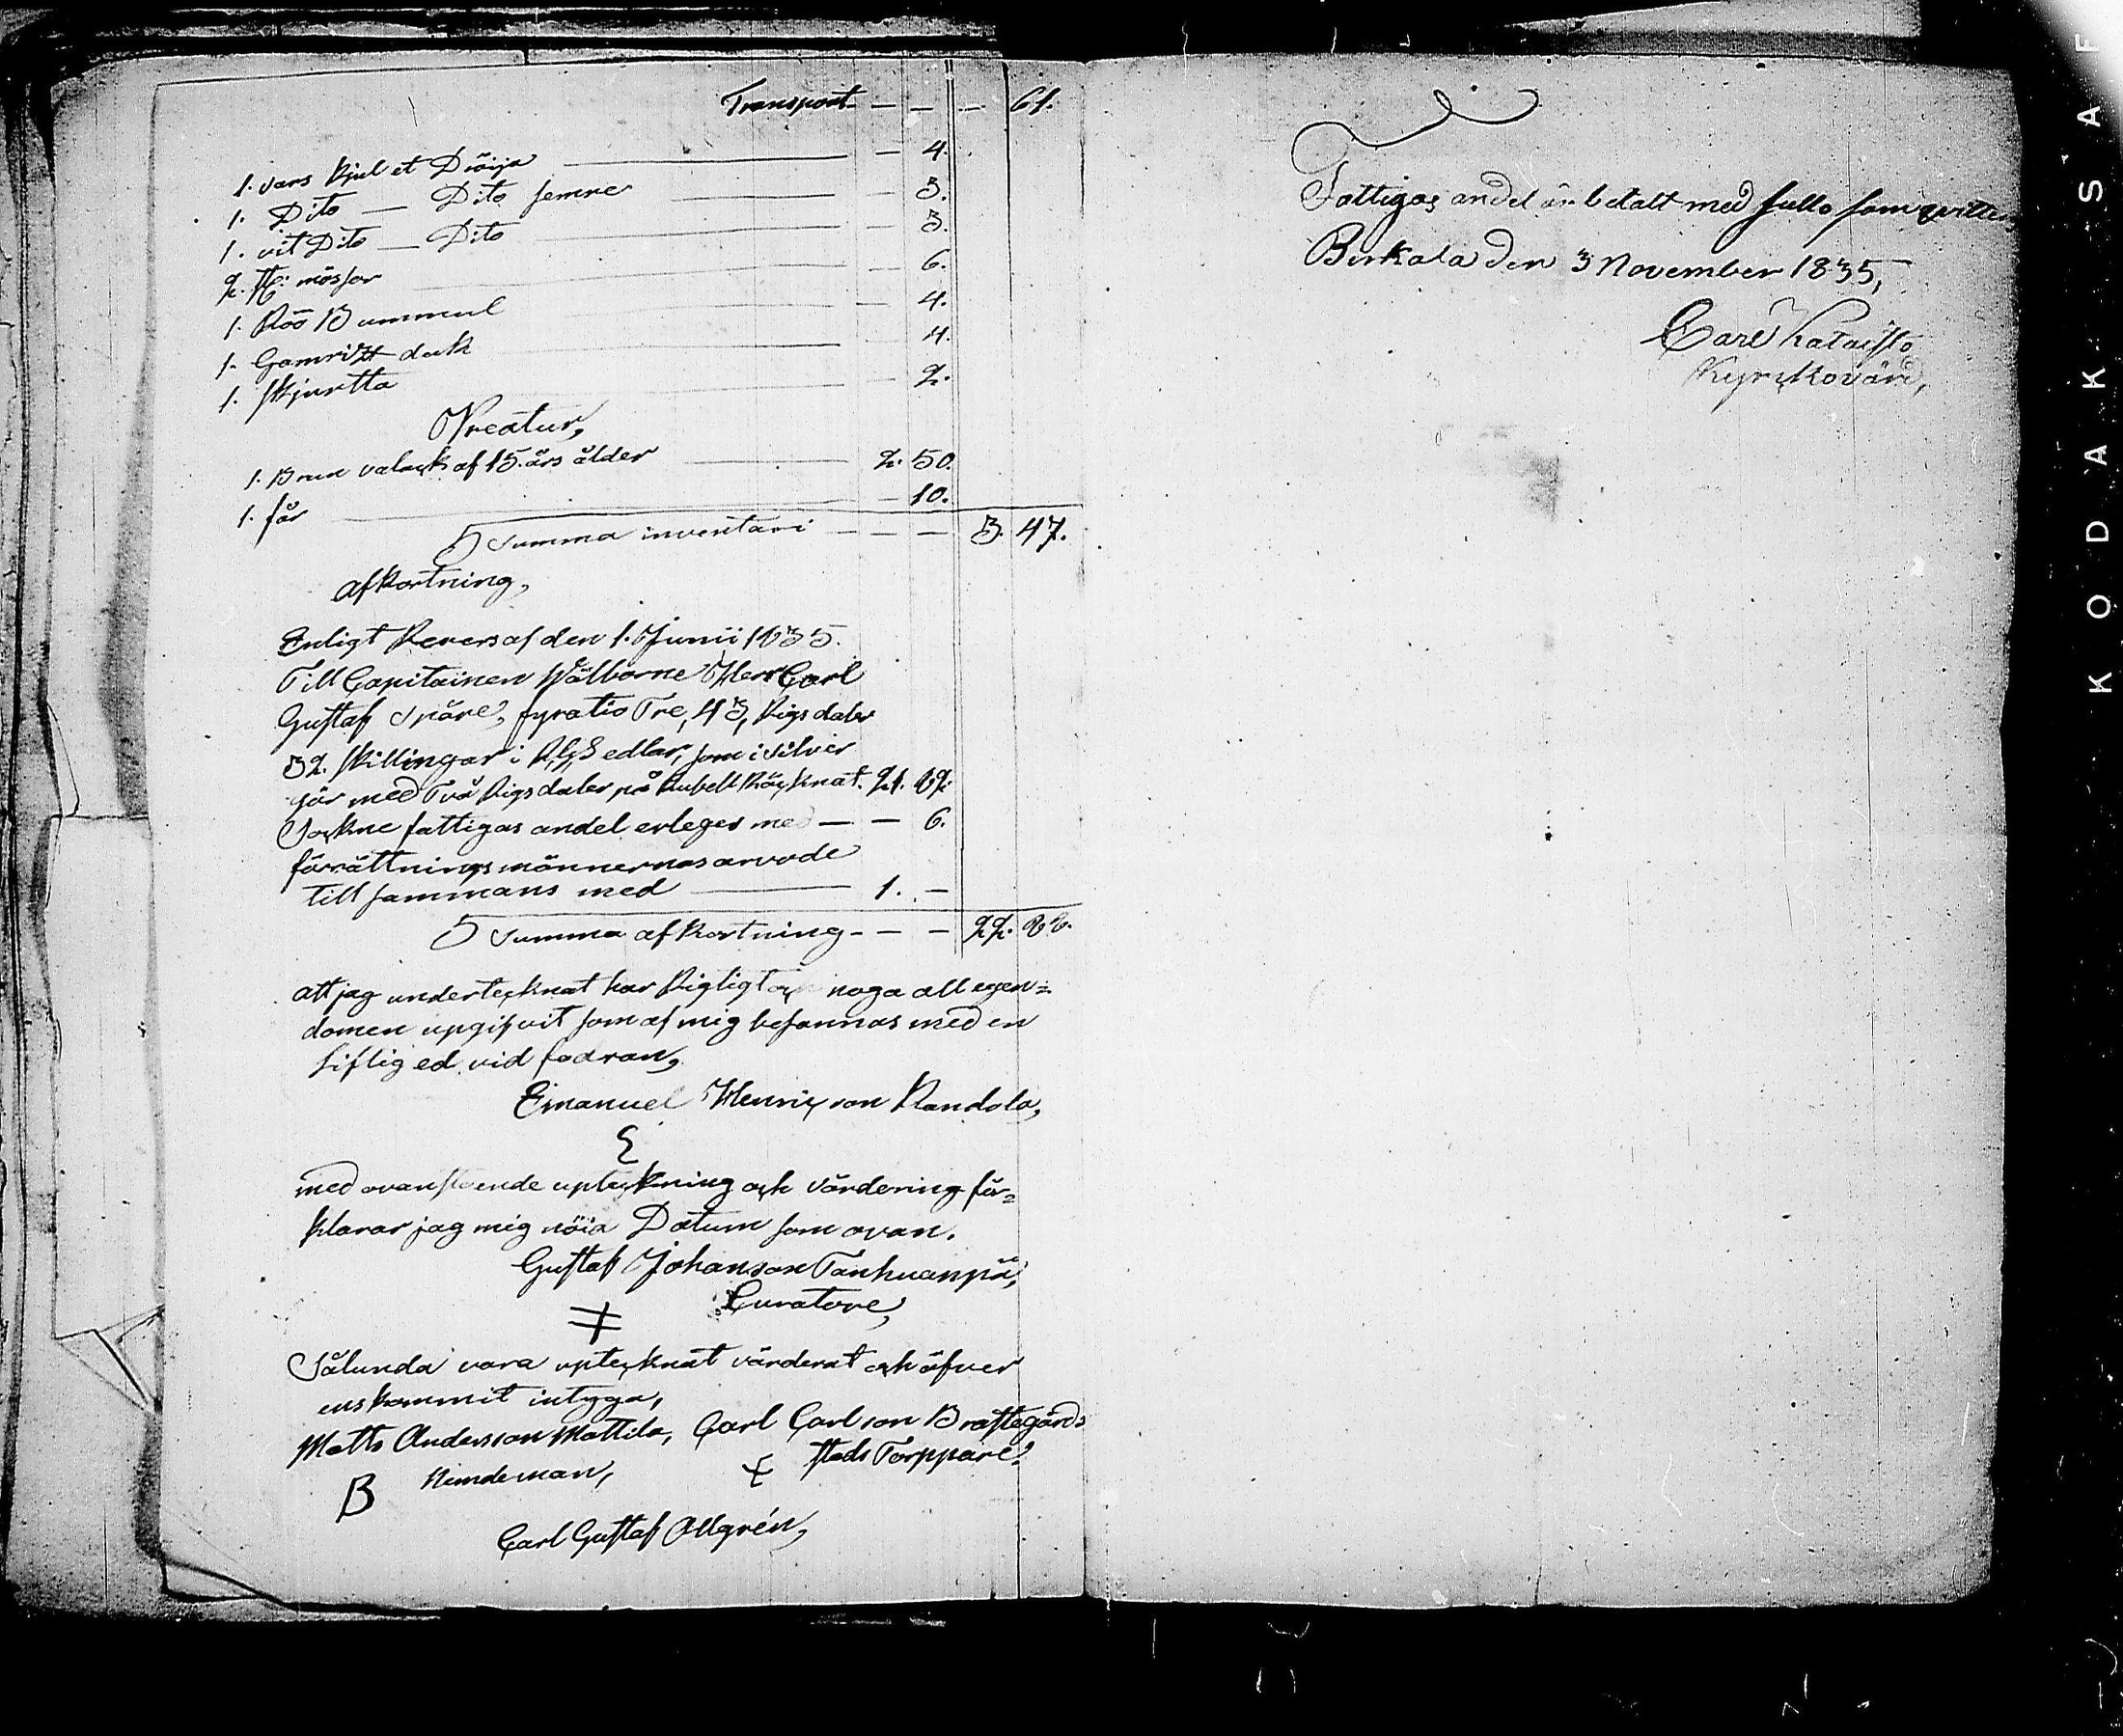 Transport — — — 61.
1. vars kjul et Dröija — 4.
1. Dito — Dito semre — 3.
1. vit Dito — Dito — 3.
2. st: mössor — 6.
1. Röö Bummul — 4.
1. duk — 4.
1. skjurtta — 2.
Kreatur,
1. Brun valack af 15. års ålder — 2. 50.
1. får — 10.
Summa inventari — — — 3. 47.
afkortning,
Enligt Revers af den 1. Junii 1835.
Till Capitainen Wälborne Herr Carl
Gustaf Spåre, fyratio Tre, 43, Rigsdaler
32. skillingar i R,G,Sedlar, som i silver
gör med Två Rigsdaler på Rubell Räcknat. 21. 82.
Sockne fattigas andel erleges med — — 6.
förrättnings männernas arvode
till sammans med — 1. —
Summa afkortning - — — 22. 88.
att jag undertecknat har Rigligt och noga all egen=
domen upgifvit som af mig befannas med en
liflig ed vid fodran,
Emanuel Henricson Randola,
med ovanstående upteckning och värdering för=
klarar jag mig nöia Datum som ovan.
Gustaf Johanson Tanhuanpä,
Curatore,
Sålunda vara uptecknat värderat och öfver
enskommit intyga,
Matts Andersson Mattila, Carl Carlson Brastegårds
B Nemdeman, stads Torppare.
Carl Gustaf Allgrén,
Fattigas andel är betalt med fullo som qvitte
Birkala den 3 November 1835,
Carl Kataisto
Kyrckovärd,
KODAK SAF